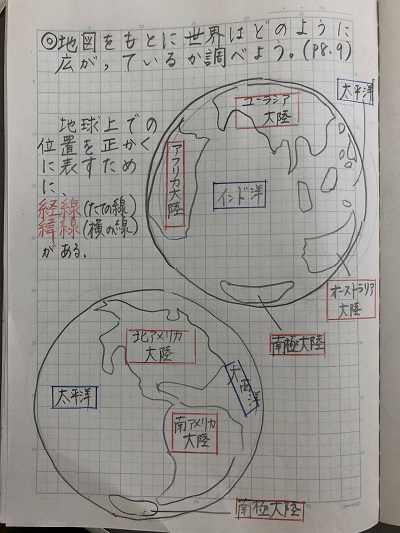 ◎地図をもとに世界はどのように
広がっているか調べよう。(P8.9)
地球上での
位置を正かく
に表すため
に、
経線(たての線)
緯線(横の線)
がある。
太平洋
ユーラシア
大陸
アフリカ大陸
インド洋
オーストラリア
大陸
南極大陸
北アメリカ
大陸
太平洋
大西洋
南アメリカ
大陸
南極大陸